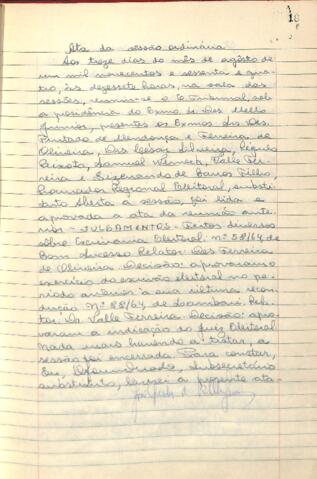 18
Ata da sessão ordinária
Aos treze dias do mês de agôsto de
um mil novecentos e sessenta e qua-
tro, às dezessete horas, na sala das
sessões, reuniu-se o E. Tribunal, sob
a presidência do Exmo. Sr. Des. Mello
Junior, presentes os Exmos. Srs. Des.
Furtado de Mendonça e Ferreira de
Oliveira, Drs. Cezar Silveira,
Peixoto, Samuel Werneck, Valle Fer-
reira e de Barros Filho,
Procurador Regional Eleitoral, substi-
tuto. Aberta a sessão, foi lida e
aprovada a ata da reunião ante-
rior - JULGAMENTOS - Feitos diversos
sôbre Escrivania Eleitoral: nº 58/64, de
Bom Sucesso. Relator: Des. Ferreira
de Oliveira. Decisão: aprovaram o
exercício do escrivão eleitoral no pe-
ríodo anterior à sua última recon-
dução. Nº 88/64, de Loambari. Rela-
tor: Dr. Valle Ferreira. Decisão: apro-
varam a indicação do Juiz Eleitoral.
Nada mais havendo a tratar, a
sessão foi encerrada. Para constar,
Eu, subsecretário
substituto, lavrei a presente ata.